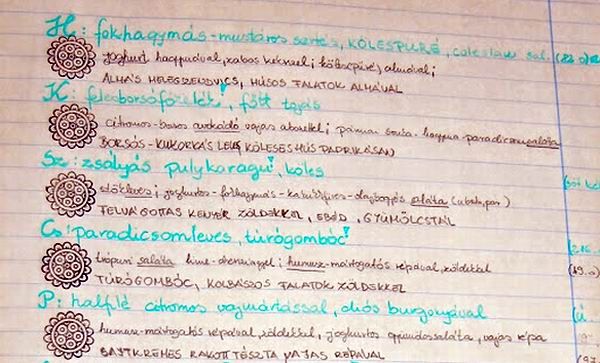 H: fokhagymás-mustáros sertés, KÖLESPÜRÉ, coleslaw sal. (82.o)
joghurt hagymával, zabos keksszel; almával;
ALMÁS MELEGSZENDVICS, HÚSOS FALATOK ALMÁVAL
K: felesborsófőzelék, főtt tojás
citromos-boros avokádó vajas abonettel; hagyma-paradicsomsaláta
BORSÓS-KUKORICÁS KÖLESES HÚS PAPRIKÁSAN
Sz: zsályás pulykaragu, köles
előleves; joghurtos-fokhagymás-olajbogyós saláta
FELVÁGOTTAS KENYÉR ZÖLDEKKEL, EBÉD, GYÜMÖLCSTÁL
Cs: paradicsomleves, túrógombóc
trópusi saláta lime-öntettel; humusz-mártogatós répával, zöldekkel (19.o)
TÚRÓGOMBÓC, KOLBÁSZOS FALATOK ZÖLDEKKEL
P: halfilé citromos vajmártással, diós burgonyával
humusz-mártogatós répával, zöldekkel, joghurtos gyümölcssaláta, vajas répa
SAJTKRÉMES RAKOTT TÉSZTA VAJAS RÉPÁVAL